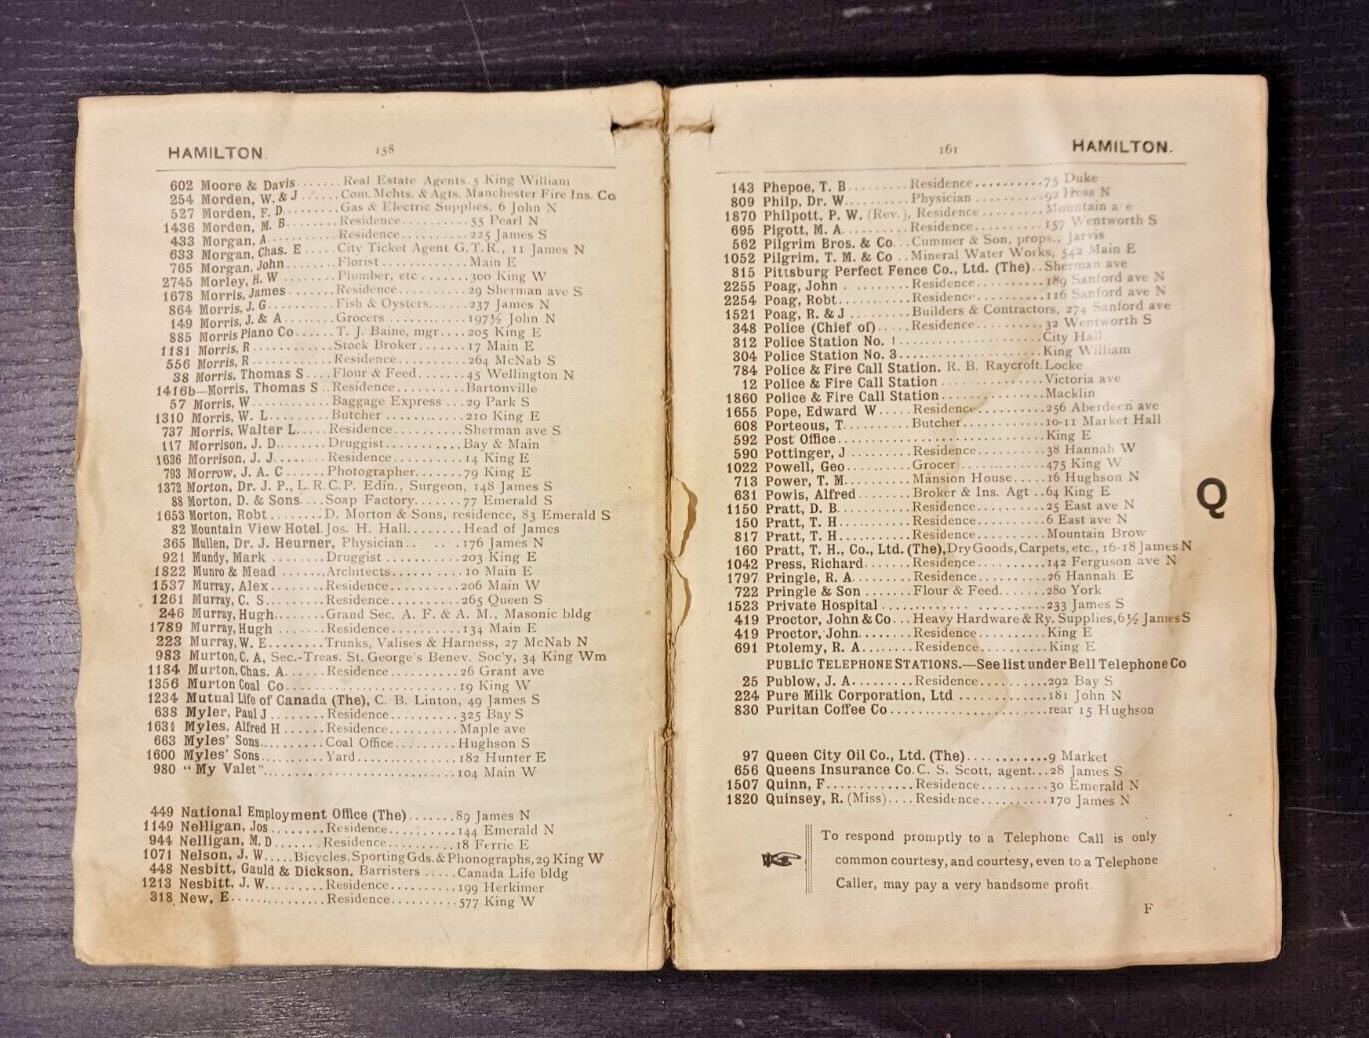 HAMILTON. 158
602 Moore & Davis.......Real Estate Agents. 5 King William
254 Morden, W. & J......Com. Mchts. & Agts. Manchester Fire Ins. Co
527 Morden, F. D........Gas & Electric Supplies, 6 John N
1436 Morden, M. B.......Residence..........55 Pearl N
433 Morgan, A...........Residence..........225 James S
633 Morgan, Chas. E.....City Ticket Agent G.T.R., 11 James N
765 Morgan, John........Florist............Main E
2745 Morley, H. W.......Plumber, etc.......300 King W
1678 Morris, James......Residence..........29 Sherman ave S
864 Morris, J. G........Fish & Oysters.....237 James N
149 Morris, J. & A......Grocers............197½ John N
885 Morris Piano Co.....T. J. Baine, mgr...205 King E
1181 Morris, R..........Stock Broker.......17 Main E
556 Morris, R...........Residence..........264 McNab S
38 Morris, Thomas S.....Flour & Feed.......45 Wellington N
1416b—Morris, Thomas S..Residence..........Bartonville
57 Morris, W............Baggage Express....29 Park S
1310 Morris, W. L.......Butcher............210 King E
737 Morris, Walter L....Residence..........Sherman ave S
117 Morrison, J. D......Druggist...........Bay & Main
1636 Morrison, J. J.....Residence..........14 King E
793 Morrow, J. A. C.....Photographer.......79 King E
1372 Morton, Dr. J. P., L.R.C.P. Edin., Surgeon, 148 James S
88 Morton, D. & Sons....Soap Factory.......77 Emerald S
1653 Morton, Robt.......D. Morton & Sons, residence, 83 Emerald S
82 Mountain View Hotel. Jos. H. Hall.......Head of James
365 Mullen, Dr. J. Heurner, Physician......176 James N
921 Mundy, Mark.........Druggist...........203 King E
1822 Munro & Mead.......Architects.........10 Main E
1537 Murray, Alex.......Residence..........206 Main W
1261 Murray, C. S.......Residence..........265 Queen S
246 Murray, Hugh........Grand Sec. A. F. & A. M., Masonic bldg
1789 Murray, Hugh.......Residence..........134 Main E
223 Murray, W. E........Trunks, Valises & Harness, 27 McNab N
983 Murton, C. A, Sec.-Treas. St. George's Benev. Soc'y, 34 King Wm
1184 Murton, Chas. A....Residence..........26 Grant ave
1356 Murton Coal Co........................19 King W
1234 Mutual Life of Canada (The), C. B. Linton, 49 James S
638 Myler, Paul J.......Residence..........325 Bay S
1631 Myles, Alfred H....Residence..........Maple ave
663 Myles' Sons.........Coal Office........Hughson S
1600 Myles' Sons........Yard...............182 Hunter E
980 "My Valet".............................104 Main W
449 National Employment Office (The).......89 James N
1149 Nelligan, Jos......Residence..........144 Emerald N
944 Nelligan, M. D......Residence..........18 Ferrie E
1071 Nelson, J. W.....Bicycles, Sporting Gds. & Phonographs, 29 King W
448 Nesbitt, Gauld & Dickson, Barristers.....Canada Life bldg
1213 Nesbitt, J. W......Residence..........199 Herkimer
318 New, E..............Residence..........577 King W
161 HAMILTON.
143 Phepoe, T. B........Residence..........75 Duke
809 Philp, Dr. W........Physician..........92 Hess N
1870 Philpott, P. W. (Rev.), Residence.....Mountain ave
695 Pigott, M. A........Residence..........157 Wentworth S
562 Pilgrim Bros. & Co...Cummer & Son, props., Jarvis
1052 Pilgrim, T. M. & Co..Mineral Water Works, 542 Main E
815 Pittsburg Perfect Fence Co., Ltd. (The)..Sherman ave
2255 Poag, John.........Residence..........189 Sanford ave N
2254 Poag, Robt.........Residence..........116 Sanford ave N
1521 Poag, R. & J.......Builders & Contractors, 274 Sanford ave
348 Police (Chief of)...Residence..........32 Wentworth S
312 Police Station No. 1...................City Hall
304 Police Station No. 3...................King William
784 Police & Fire Call Station. R. B. Raycroft. Locke
12 Police & Fire Call Station..............Victoria ave
1860 Police & Fire Call Station............Macklin
1655 Pope, Edward W.....Residence..........256 Aberdeen ave
608 Porteous, T.........Butcher............10-11 Market Hall
592 Post Office............................King E
590 Pottinger, J........Residence..........38 Hannah W
1022 Powell, Geo........Grocer.............475 King W
713 Power, T. M.........Mansion House......16 Hughson N
631 Powis, Alfred.......Broker & Ins. Agt..64 King E
1150 Pratt, D. B........Residence..........25 East ave N
150 Pratt, T. H.........Residence..........6 East ave N
817 Pratt, T. H.........Residence..........Mountain Brow
160 Pratt, T. H., Co., Ltd. (The), Dry Goods, Carpets, etc., 16-18 James N
1042 Press, Richard.....Residence..........142 Ferguson ave N
1797 Pringle, R. A......Residence..........26 Hannah E
722 Pringle & Son.......Flour & Feed.......280 York
1523 Private Hospital......................233 James S
419 Proctor, John & Co...Heavy Hardware & Ry. Supplies, 6½ James S
419 Proctor, John.......Residence..........King E
691 Ptolemy, R. A.......Residence..........King E
PUBLIC TELEPHONE STATIONS.—See list under Bell Telephone Co
25 Publow, J. A.........Residence..........292 Bay S
224 Pure Milk Corporation, Ltd.............181 John N
830 Puritan Coffee Co......................rear 15 Hughson
Q
97 Queen City Oil Co., Ltd. (The)............9 Market
656 Queens Insurance Co. C. S. Scott, agent...28 James S
1507 Quinn, F...........Residence..........30 Emerald N
1820 Quinsey, R. (Miss)....Residence..........170 James N
To respond promptly to a Telephone Call is only
common courtesy, and courtesy, even to a Telephone
Caller, may pay a very handsome profit.
F